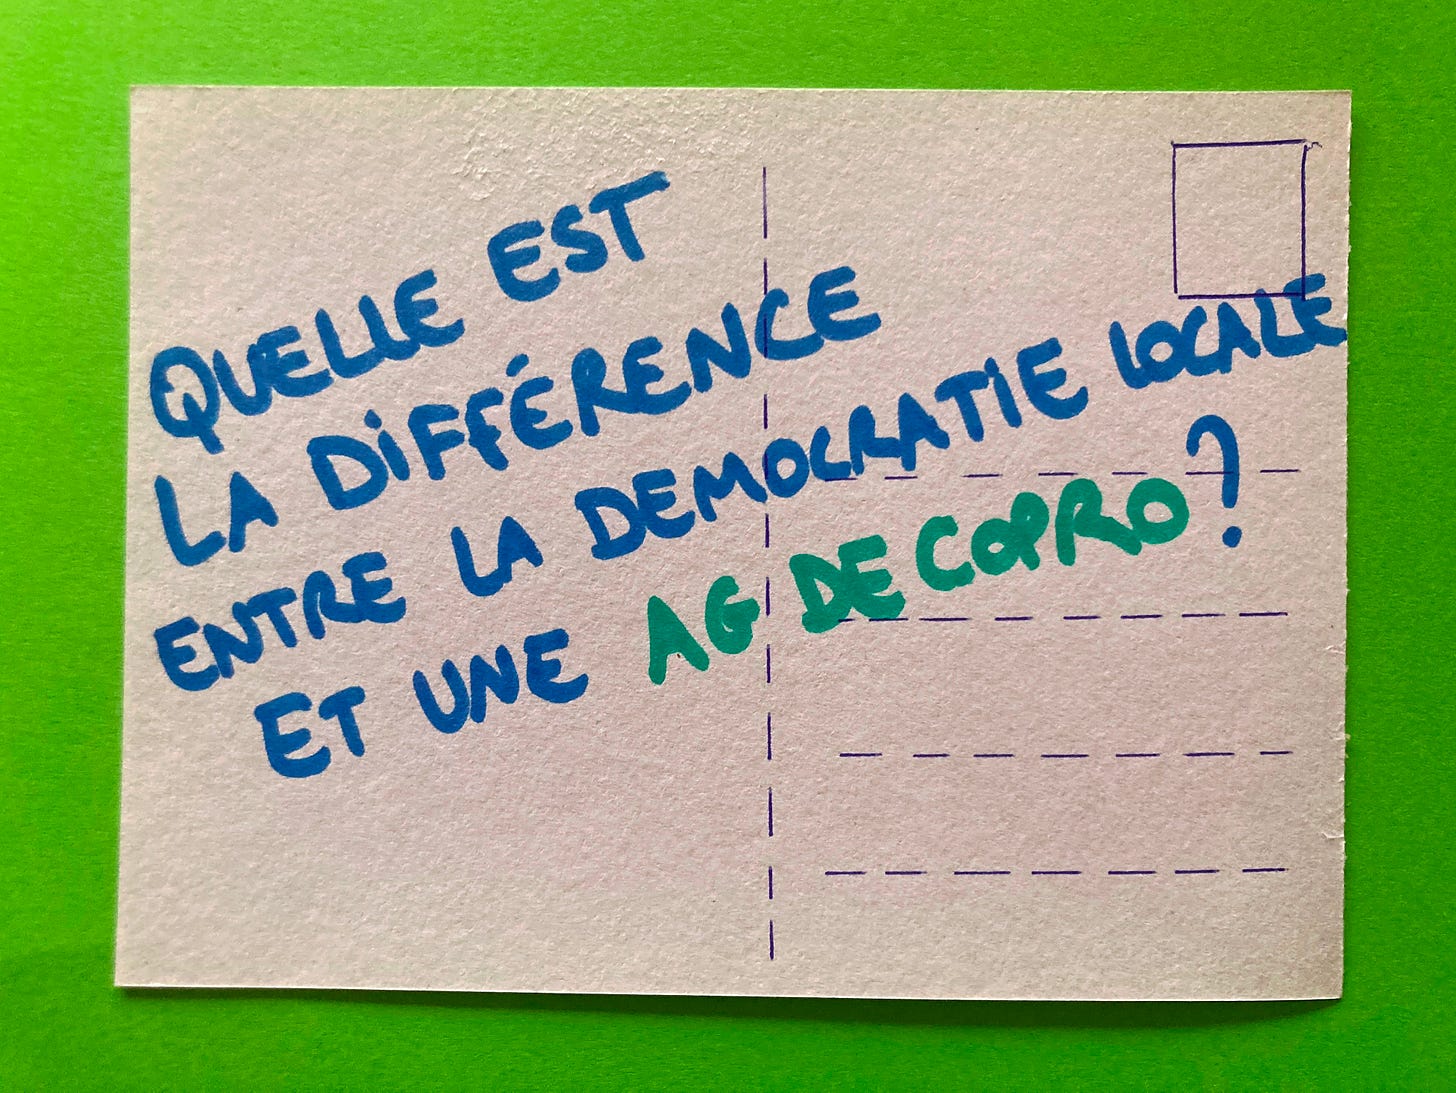 QUELLE EST
LA DIFFÉRENCE
ENTRE LA DEMOCRATIE LOCALE
ET UNE AG DE COPRO ?